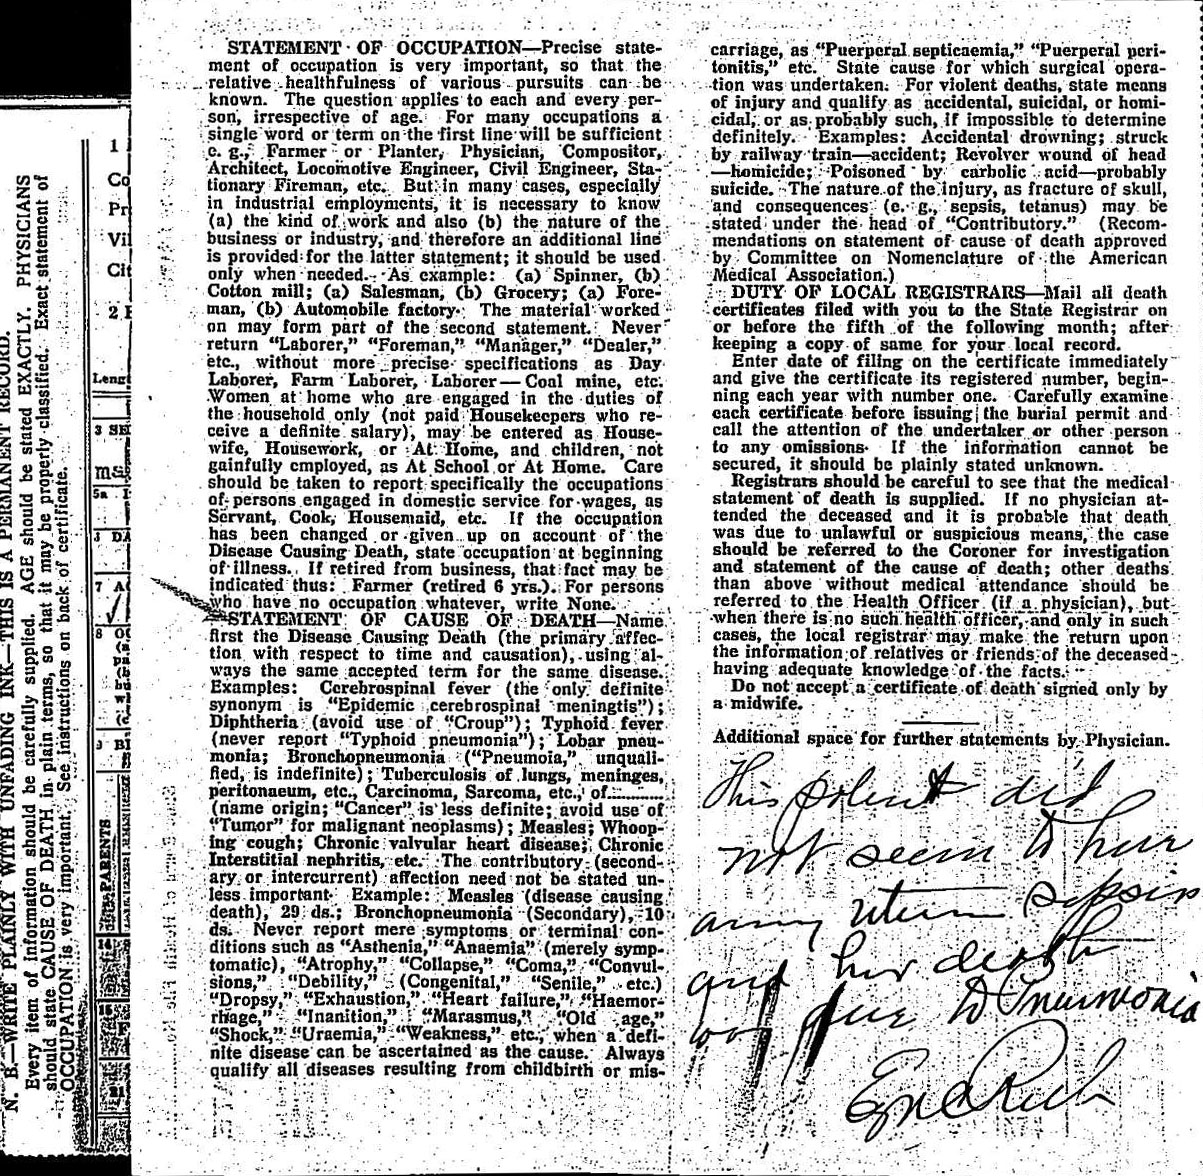 N. B.—WRITE PLAINLY WITH UNFADING INK—THIS IS A PERMANENT RECORD.
Every item of information should be carefully supplied. AGE should be stated EXACTLY. PHYSICIANS
should state CAUSE OF DEATH in plain terms, so that it may be properly classified. Exact statement of
OCCUPATION is very important. See instructions on back of certificate.
1
Co
Pr
Vil
Cit
2
Lengt
3 SE
5a
7 A
8
PARENTS
STATEMENT OF OCCUPATION—Precise state-
ment of occupation is very important, so that the
relative healthfulness of various pursuits can be
known. The question applies to each and every per-
son, irrespective of age. For many occupations a
single word or term on the first line will be sufficient
e. g., Farmer or Planter, Physician, Compositor,
Architect, Locomotive Engineer, Civil Engineer, Sta-
tionary Fireman, etc. But in many cases, especially
in industrial employments, it is necessary to know
(a) the kind of work and also (b) the nature of the
business or industry, and therefore an additional line
is provided for the latter statement; it should be used
only when needed. As example: (a) Spinner, (b)
Cotton mill; (a) Salesman, (b) Grocery; (a) Fore-
man, (b) Automobile factory. The material worked
on may form part of the second statement. Never
return "Laborer," "Foreman," "Manager," "Dealer,"
etc., without more precise specifications as Day
Laborer, Farm Laborer, Laborer—Coal mine, etc.
Women at home who are engaged in the duties of
the household only (not paid Housekeepers who re-
ceive a definite salary), may be entered as House-
wife, Housework, or At Home, and children, not
gainfully employed, as At School or At Home. Care
should be taken to report specifically the occupations
of persons engaged in domestic service for wages, as
Servant, Cook, Housemaid, etc. If the occupation
has been changed or given up on account of the
Disease Causing Death, state occupation at beginning
of illness. If retired from business, that fact may be
indicated thus: Farmer (retired 6 yrs.). For persons
who have no occupation whatever, write None.
STATEMENT OF CAUSE OF DEATH—Name
first the Disease Causing Death (the primary affec-
tion with respect to time and causation), using al-
ways the same accepted term for the same disease.
Examples: Cerebrospinal fever (the only definite
synonym is "Epidemic cerebrospinal meningtis");
Diphtheria (avoid use of "Croup"); Typhoid fever
(never report "Typhoid pneumonia"); Lobar pneu-
monia; Bronchopneumonia ("Pneumoia," unquali-
fied, is indefinite); Tuberculosis of lungs, meninges,
peritonaeum, etc., Carcinoma, Sarcoma, etc., of............
(name origin; "Cancer" is less definite; avoid use of
"Tumor" for malignant neoplasms); Measles; Whoop-
ing cough; Chronic valvular heart disease; Chronic
Interstitial nephritis, etc. The contributory (second-
ary or intercurrent) affection need not be stated un-
less important. Example: Measles (disease causing
death), 29 ds.; Bronchopneumonia (Secondary), 10
ds. Never report mere symptoms or terminal con-
ditions such as "Asthenia," "Anaemia" (merely symp-
tomatic), "Atrophy," "Collapse," "Coma," "Convul-
sions," "Debility," (Congenital," "Senile," etc.)
"Dropsy," "Exhaustion," "Heart failure," "Haemor-
rhage," "Inanition," "Marasmus," "Old age,"
"Shock," "Uraemia," "Weakness," etc., when a defi-
nite disease can be ascertained as the cause. Always
qualify all diseases resulting from childbirth or mis-
carriage, as "Puerperal septicaemia," "Puerperal peri-
tonitis," etc. State cause for which surgical opera-
tion was undertaken. For violent deaths, state means
of injury and qualify as accidental, suicidal, or homi-
cidal, or as probably such, if impossible to determine
definitely. Examples: Accidental drowning; struck
by railway train—accident; Revolver wound of head
—homicide; Poisoned by carbolic acid—probably
suicide. The nature of the injury, as fracture of skull,
and consequences (e. g., sepsis, tetanus) may be
stated under the head of "Contributory." (Recom-
mendations on statement of cause of death approved
by Committee on Nomenclature of the American
Medical Association.)
DUTY OF LOCAL REGISTRARS—Mail all death
certificates filed with you to the State Registrar on
or before the fifth of the following month; after
keeping a copy of same for your local record.
Enter date of filing on the certificate immediately
and give the certificate its registered number, begin-
ning each year with number one. Carefully examine
each certificate before issuing the burial permit and
call the attention of the undertaker or other person
to any omissions. If the information cannot be
secured, it should be plainly stated unknown.
Registrars should be careful to see that the medical
statement of death is supplied. If no physician at-
tended the deceased and it is probable that death
was due to unlawful or suspicious means, the case
should be referred to the Coroner for investigation
and statement of the cause of death; other deaths
than above without medical attendance should be
referred to the Health Officer (if a physician), but
when there is no such health officer, and only in such
cases, the local registrar may make the return upon
the information of relatives or friends of the deceased
having adequate knowledge of the facts.
Do not accept a certificate of death signed only by
a midwife.
Additional space for further statements by Physician.
This patient did
not seem to have
any uterine sepsis
and her death
was due to Pneumonia